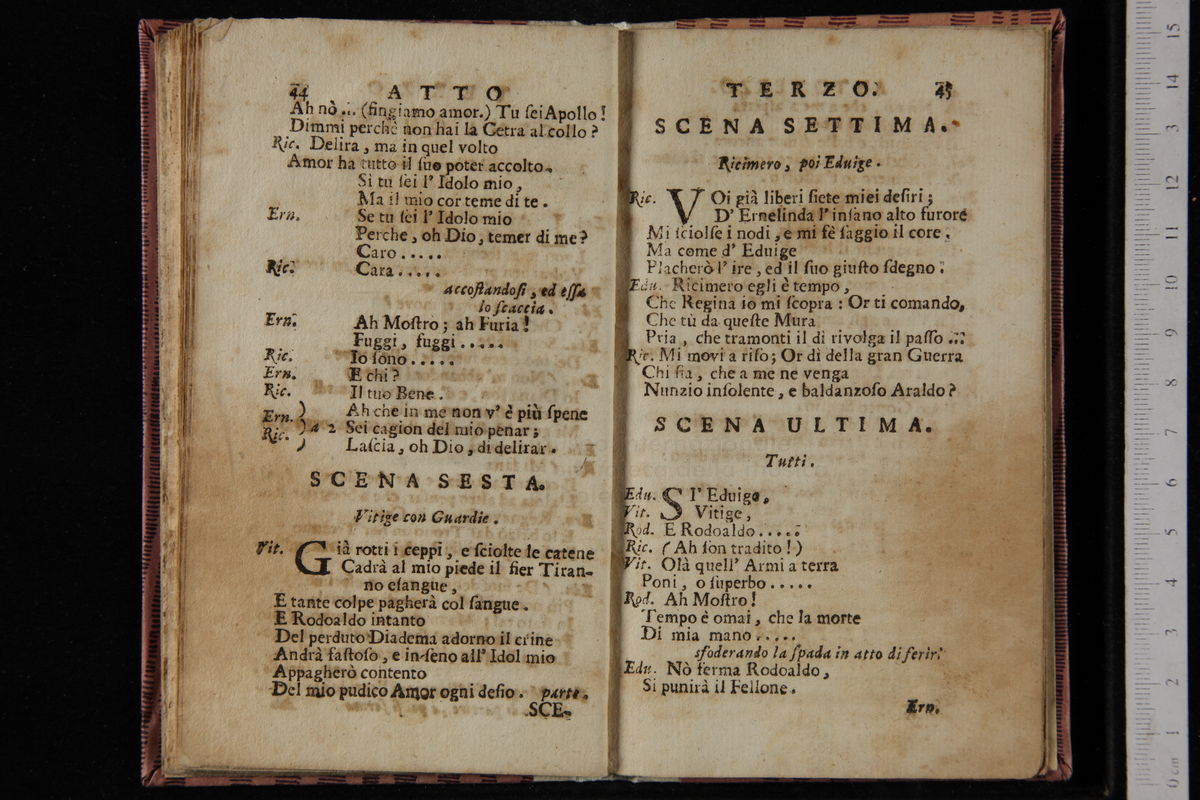 44 ATTO
Ah nò ... (fingiamo amor.) Tu ſei Apollo!
Dimmi perchè non hai la Cetra al collo?
Ric. Delira, ma in quel volto
Amor ha tutto il ſuo poter accolto.
Si tu ſei l' Idolo mio,
Ma il mio cor teme di te.
Ern. Se tu ſei l' Idolo mio
Perche, oh Dio, temer di me?
Caro.....
Ric. Cara.....
accoſtandoſi, ed eſſa
lo ſcaccia.
Ern. Ah Moſtro; ah Furia!
Fuggi, fuggi.....
Ric. Io ſono.....
Ern. E chi?
Ric. Il tuo Bene.
Ern. ) Ah che in me non v' è più ſpene
Ric. ) a 2 Sei cagion del mio penar;
) Laſcia, oh Dio, di delirar.
SCENA SESTA.
Vitige con Guardie.
Vit. Già rotti i ceppi, e ſciolte le catene
Cadrà al mio piede il fier Tiran-
no eſangue,
E tante colpe pagherà col ſangue.
E Rodoaldo intanto
Del perduto Diadema adorno il crine
Andrà faſtoſo, e in ſeno all' Idol mio
Appagherò contento
Del mio pudico Amor ogni deſio. parte.
SCE-
TERZO. 45
SCENA SETTIMA.
Ricimero, poi Eduige.
Ric. VOi già liberi ſiete miei deſiri;
D' Ernelinda l' inſano alto furore
Mi ſciolſe i nodi, e mi fè ſaggio il core.
Ma come d' Eduige
Placherò l' ire, ed il ſuo giuſto ſdegno.
Edu. Ricimero egli è tempo,
Che Regina io mi ſcopra: Or ti comando,
Che tù da queſte Mura
Pria, che tramonti il dì rivolga il paſſo ...
Ric. Mi movi a riſo; Or dì della gran Guerra
Chi fia, che a me ne venga
Nunzio inſolente, e baldanzoſo Araldo?
SCENA ULTIMA.
Tutti.
Edu. SI' Eduige,
Vit. Vitige,
Rod. E Rodoaldo.....
Ric. (Ah ſon tradito!)
Vit. Olà quell' Armi a terra
Poni, o ſuperbo.....
Rod. Ah Moſtro!
Tempo è omai, che la morte
Di mia mano.....
sfoderando la ſpada in atto di ferir.
Edu. Nò ferma Rodoaldo,
Si punirà il Fellone.
Ern.
0 cm 1 2 3 4 5 6 7 8 9 10 11 12 13 14 15